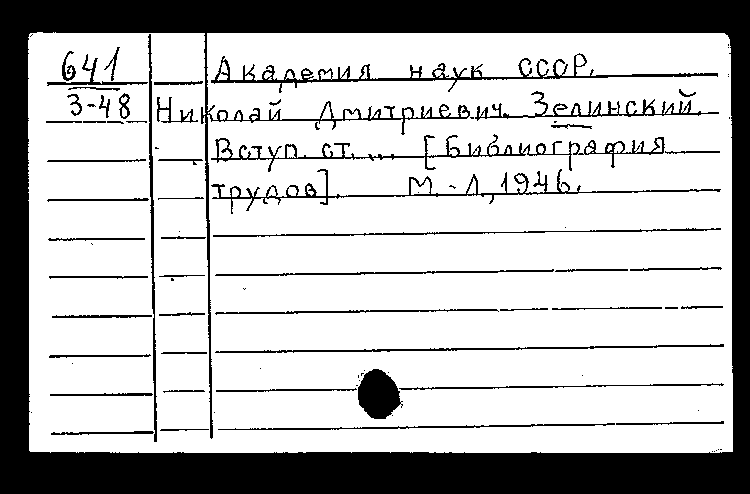 641 Академия наук СССР.
З-48 Николай Дмитриевич Зелинский.
Вступ. ст. ... [Библиография
трудов]. М.-Л., 1946.